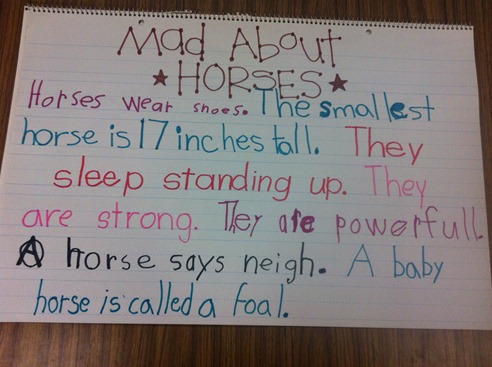 Mad About
★HORSES★
Horses wear shoes. The smallest
horse is 17 inches tall. They
sleep standing up. They
are strong. They are powerfull.
A horse says neigh. A baby
horse is called a foal.